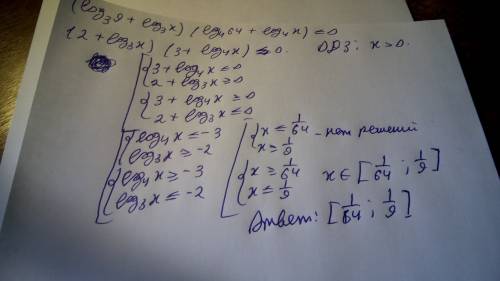 (log₃9 + log₃x) (log₄64 + log₄x) ≤ 0
(2 + log₃x) (3 + log₄x) ≤ 0. ОДЗ: x > 0.
3 + log₄x ≤ 0
2 + log₃x ≥ 0
3 + log₄x ≥ 0
2 + log₃x ≤ 0
log₄x ≤ -3
log₃x ≥ -2
log₄x ≥ -3
log₃x ≤ -2
x ≤ 1/64 - нет решений
x ≥ 1/9
x ≥ 1/64
x ≤ 1/9
x ∈ [1/64; 1/9]
Ответ: [1/64; 1/9]